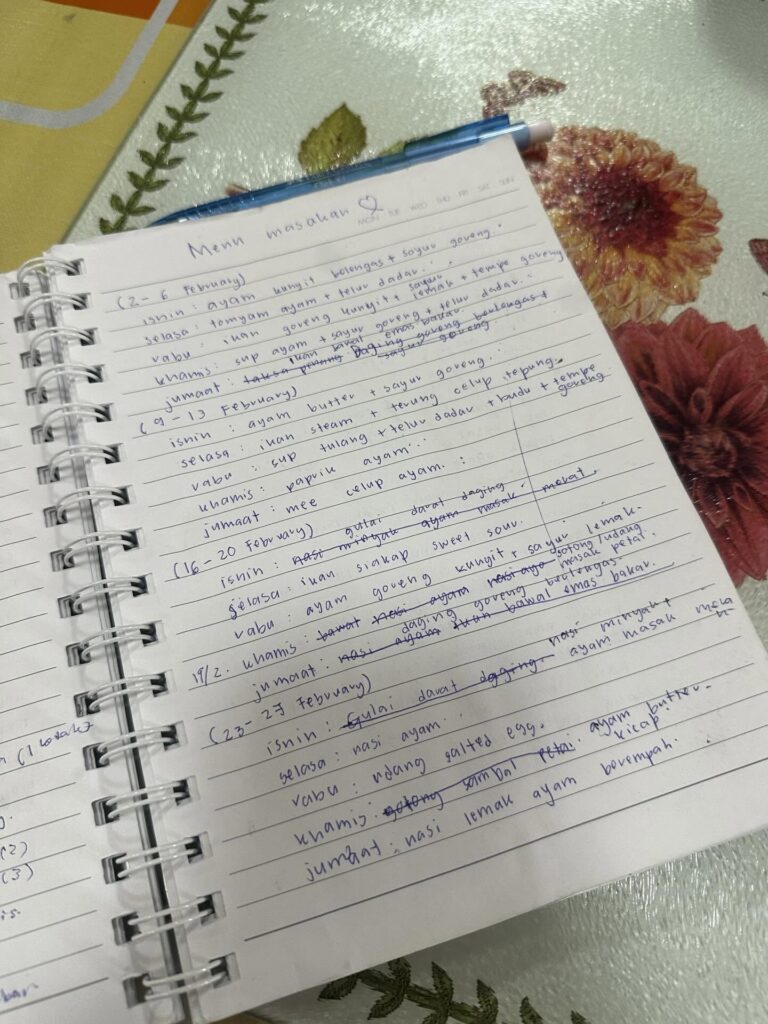 Menu masakan ♡
MON TUE WED THU FRI SAT SUN
(2 - 6 February)
isnin : ayam kunyit belengas + sayur goreng.
selasa : tomyam ayam + telur dadar.
rabu : ikan goreng kunyit + sayur lemak + tempe goreng
khamis : sup ayam + sayur goreng + telur dadar.
ikan bawal emas bakar.
jumaat : laksa penang Daging goreng berlengas +
sayur goreng
(9 - 13 February)
isnin : ayam butter + sayur goreng.
selasa : ikan steam + terung celup tepung.
rabu : sup tulang + telur dadar + + tempe goreng
khamis : paprik ayam.
jumaat : mee celup ayam.
(16 - 20 February)
gulai darat daging
isnin : nasi minyak ayam masak merah.
selasa : ikan siakap sweet sour.
rabu : ayam goreng kunyit + sayur lemak.
19/2. khamis : bawal nasi ayam nasi aya sotong/udang masak petai.
daging goreng berlengas.
jumaat : nasi ayam ikan bawal emas bakar.
(23 - 27 February)
isnin : Gulai darat daging. nasi minyak + ayam masak merah
selasa : nasi ayam.
rabu : udang salted egg.
khamis : sotong sambal petai. ayam butter. kicap
jumaat : nasi lemak ayam berempah.
(2)
(3)